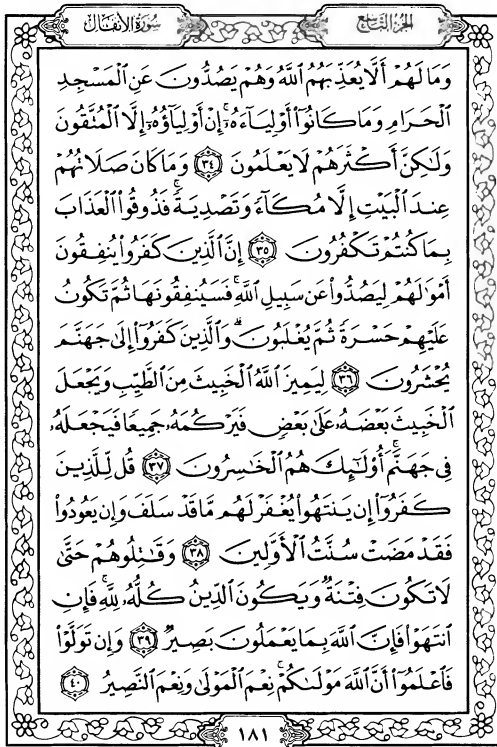 الجزء التاسع
سورة الأنفال
وَمَا لَهُمْ أَلَّا يُعَذِّبَهُمُ اللَّهُ وَهُمْ يَصُدُّونَ عَنِ الْمَسْجِدِ
الْحَرَامِ وَمَا كَانُوٓا۟ أَوْلِيَآءَهُۥٓ ۚ إِنْ أَوْلِيَآؤُهُۥٓ إِلَّا الْمُتَّقُونَ
وَلَٰكِنَّ أَكْثَرَهُمْ لَا يَعْلَمُونَ ﴿٣٤﴾ وَمَا كَانَ صَلَاتُهُمْ
عِندَ الْبَيْتِ إِلَّا مُكَآءً وَتَصْدِيَةً ۚ فَذُوقُوا۟ الْعَذَابَ
بِمَا كُنتُمْ تَكْفُرُونَ ﴿٣٥﴾ إِنَّ الَّذِينَ كَفَرُوا۟ يُنفِقُونَ
أَمْوَٰلَهُمْ لِيَصُدُّوا۟ عَن سَبِيلِ اللَّهِ ۚ فَسَيُنفِقُونَهَا ثُمَّ تَكُونُ
عَلَيْهِمْ حَسْرَةً ثُمَّ يُغْلَبُونَ ۗ وَالَّذِينَ كَفَرُوٓا۟ إِلَىٰ جَهَنَّمَ
يُحْشَرُونَ ﴿٣٦﴾ لِيَمِيزَ اللَّهُ الْخَبِيثَ مِنَ الطَّيِّبِ وَيَجْعَلَ
الْخَبِيثَ بَعْضَهُۥ عَلَىٰ بَعْضٍ فَيَرْكُمَهُۥ جَمِيعًا فَيَجْعَلَهُۥ
فِى جَهَنَّمَ ۚ أُو۟لَٰٓئِكَ هُمُ الْخَاسِرُونَ ﴿٣٧﴾ قُل لِّلَّذِينَ
كَفَرُوٓا۟ إِن يَنتَهُوا۟ يُغْفَرْ لَهُم مَّا قَدْ سَلَفَ وَإِن يَعُودُوا۟
فَقَدْ مَضَتْ سُنَّتُ الْأَوَّلِينَ ﴿٣٨﴾ وَقَٰتِلُوهُمْ حَتَّىٰ
لَا تَكُونَ فِتْنَةٌ وَيَكُونَ الدِّينُ كُلُّهُۥ لِلَّهِ ۚ فَإِنِ
انتَهَوْا۟ فَإِنَّ اللَّهَ بِمَا يَعْمَلُونَ بَصِيرٌ ﴿٣٩﴾ وَإِن تَوَلَّوْا۟
فَاعْلَمُوٓا۟ أَنَّ اللَّهَ مَوْلَىٰكُمْ ۚ نِعْمَ الْمَوْلَىٰ وَنِعْمَ النَّصِيرُ ﴿٤٠﴾
١٨١